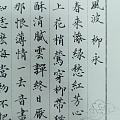 風波 柳永
春來慘綠愁紅芳心
上花梢鶯穿柳帶
酥消膩雲嚲終日厭
那恨薄情一去音書
知麼當初不把